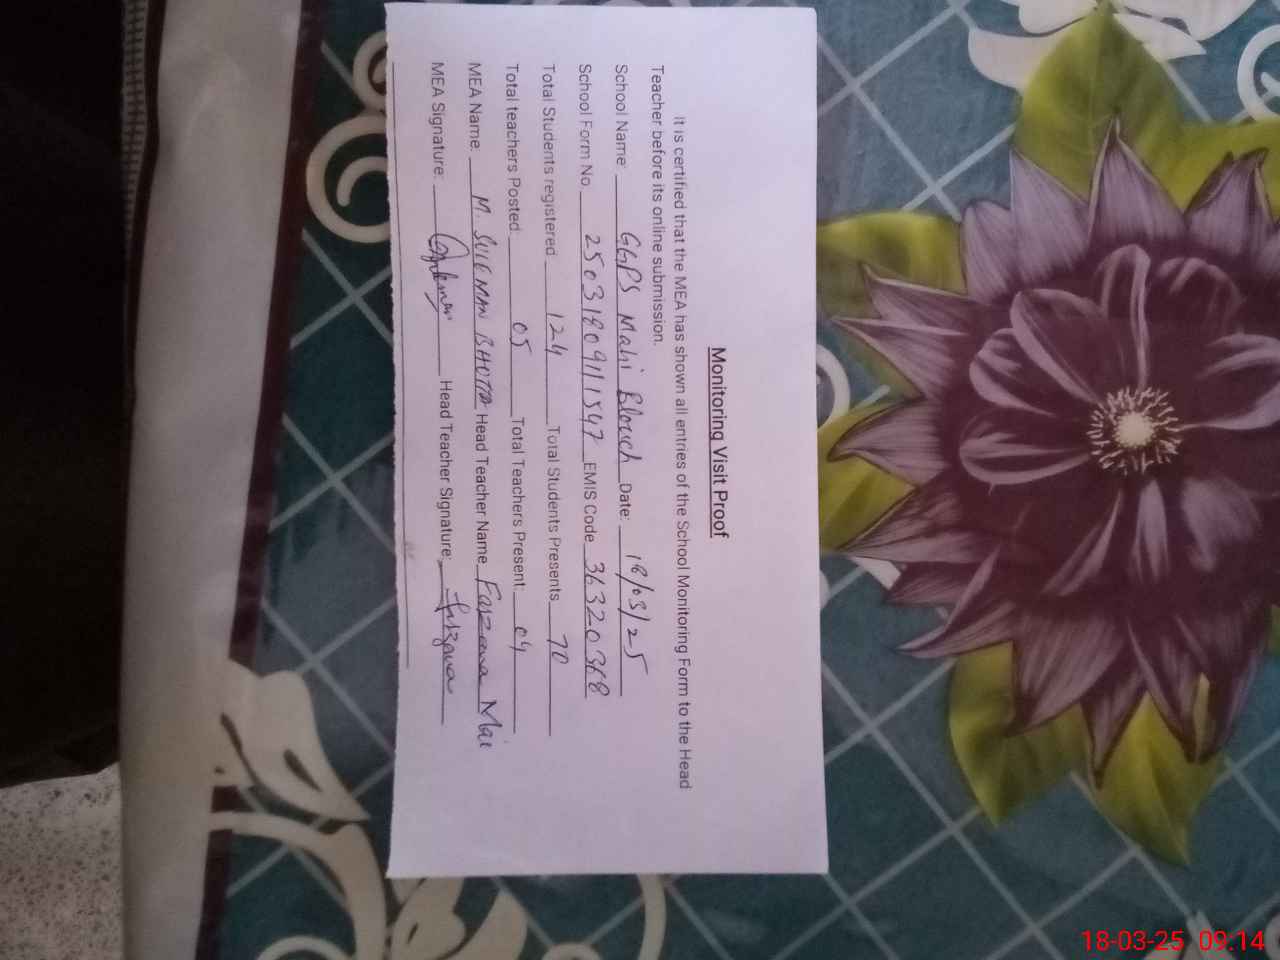 Monitoring Visit Proof
It is certified that the MEA has shown all entries of the School Monitoring Form to the Head
Teacher before its online submission.
School Name: GGPS Mahi Blouch Date: 18/03/25
School Form No. 25031809111547 EMIS Code 36320368
Total Students registered 124 Total Students Presents 70
Total teachers Posted: 05 Total Teachers Present: 04
MEA Name: M. SULEMAN BHUTTA Head Teacher Name Farzana Mai
MEA Signature: Head Teacher Signature: Farzana
18-03-25 09:14